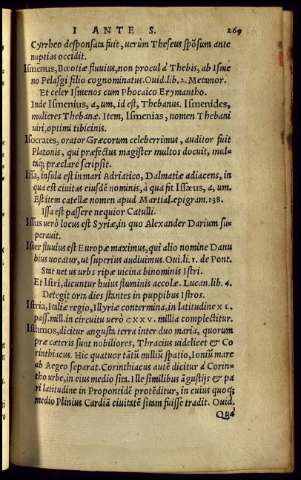 I ANTE S. 269
Cyrrheo desponsata fuit, uerùm Theseus spõsum ante
nuptias occidit.
Ismenus, Bœotiæ fluuius, non procul à Thebis, ab Isme
no Pelasgi filio cognominatus. Ouid. lib. 2. Metamor.
Et celer Ismenos cum Phocaico Erymantho.
Inde Ismenius, a, um, id est, Thebanus. Ismenides,
mulieres Thebanæ. Item, Ismenias, nomen Thebani
uiri, optimi tibicinis.
Isocrates, orator Græcorum celeberrimus, auditor fuit
Platonis, qui præfectus magister multos docuit, mul-
taq; præclarè scripsit.
Issa, insula est in mari Adriatico, Dalmatiæ adiacens, in
qua est ciuitas eiusdẽ nominis, à qua fit Issæus, a, um.
Est item catellæ nomen apud Martial. epigram. 138.
Issa est passere nequior Catulli.
Issus uerò locus est Syriæ, in quo Alexander Darium su-
perauit.
Ister fluuius est Europæ maximus, qui alio nomine Danu
bius uocatur, ut superius audiuimus. Oui. li. 1. de Pont.
Stat uetus urbs ripæ uicina binominis Istri.
Et Istri, dicuntur huius fluminis accolæ. Lucan. lib. 4.
Detegit orta dies stantes in puppibus Istros.
Istria, Italiæ regio, Illyriæ contermina, in latitudine XL.
pass. mill. in circuitu uerò CXXV. millia complectitur.
Isthmos, dicitur angusta terra inter duo maria, quorum
præ cæteris sunt nobiliores, Thracius uidelicet & Co
rinthiacus. Hic quatuor tãtũ milliũ spatio, Ioniũ mare
ab Aegeo separat. Corinthiacus autẽ dicitur à Corin-
tho urbe, in eius medio sita. Ille similibus ãgustijs & pa
ri latitudine in Propontidẽ protẽditur, in cuius quoq;
medio Plinius Cardiã ciuitatẽ sitam fuisse tradit. Ouid.
Quà